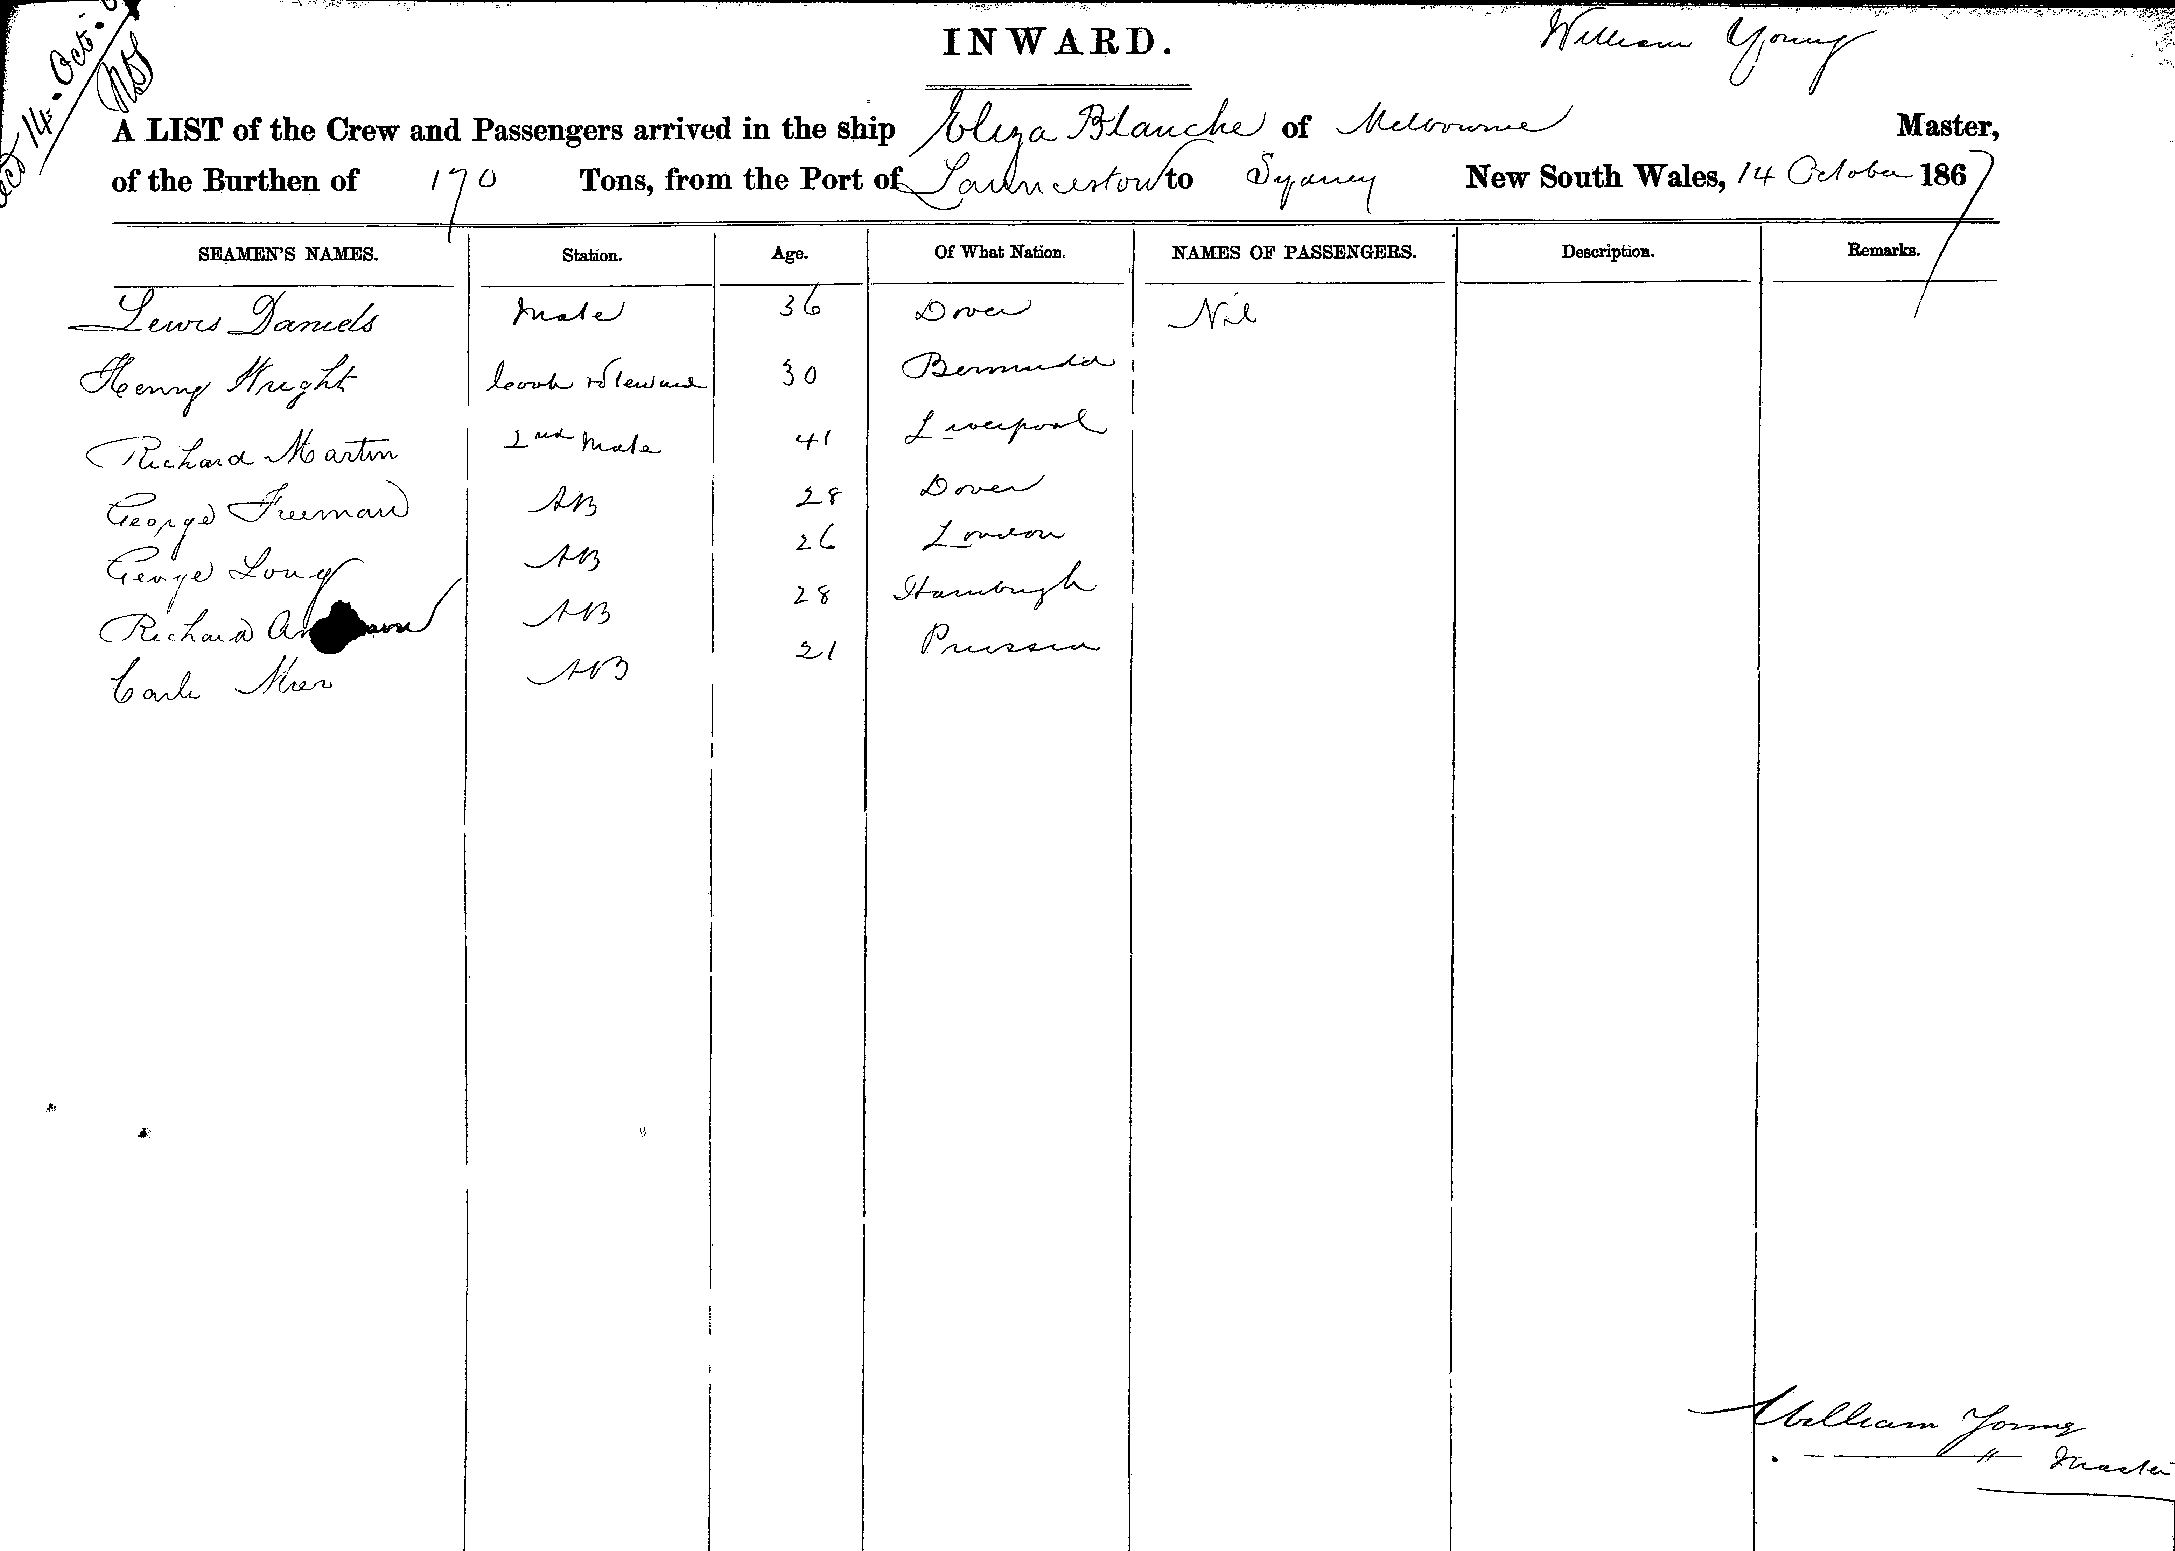 14. Oct.
INWARD.
William Young
A LIST of the Crew and Passengers arrived in the ship Eliza Blanche of Melbourne Master,
of the Burthen of 170 Tons, from the Port of Launceston to Sydney New South Wales, 14 October 1867
SEAMEN'S NAMES. Station. Age. Of What Nation. NAMES OF PASSENGERS. Description. Remarks.
Lewis Daniels Mate 36 Dover Nil
Henry Wright Cook & Steward 30 Bermuda
Richard Martin 2nd Mate 41 Liverpool
George Freeman AB 28 Dover
George Long AB 26 London
Richard AB 28 Hamburgh
Carl AB 21 Prussia
William Young
" Master